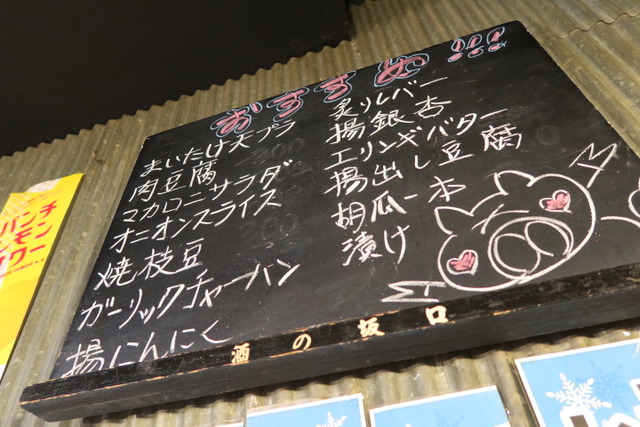 おすすめ!!!
まいたけ天プラ
肉豆腐
マカロニサラダ
オニオンスライス
焼枝豆
ガーリックチャーハン
揚にんにく
炙りレバー
揚銀杏
エリンギバター
揚出し豆腐
胡瓜一本
漬け
酒の坂口
パンチ
レモン
サワー